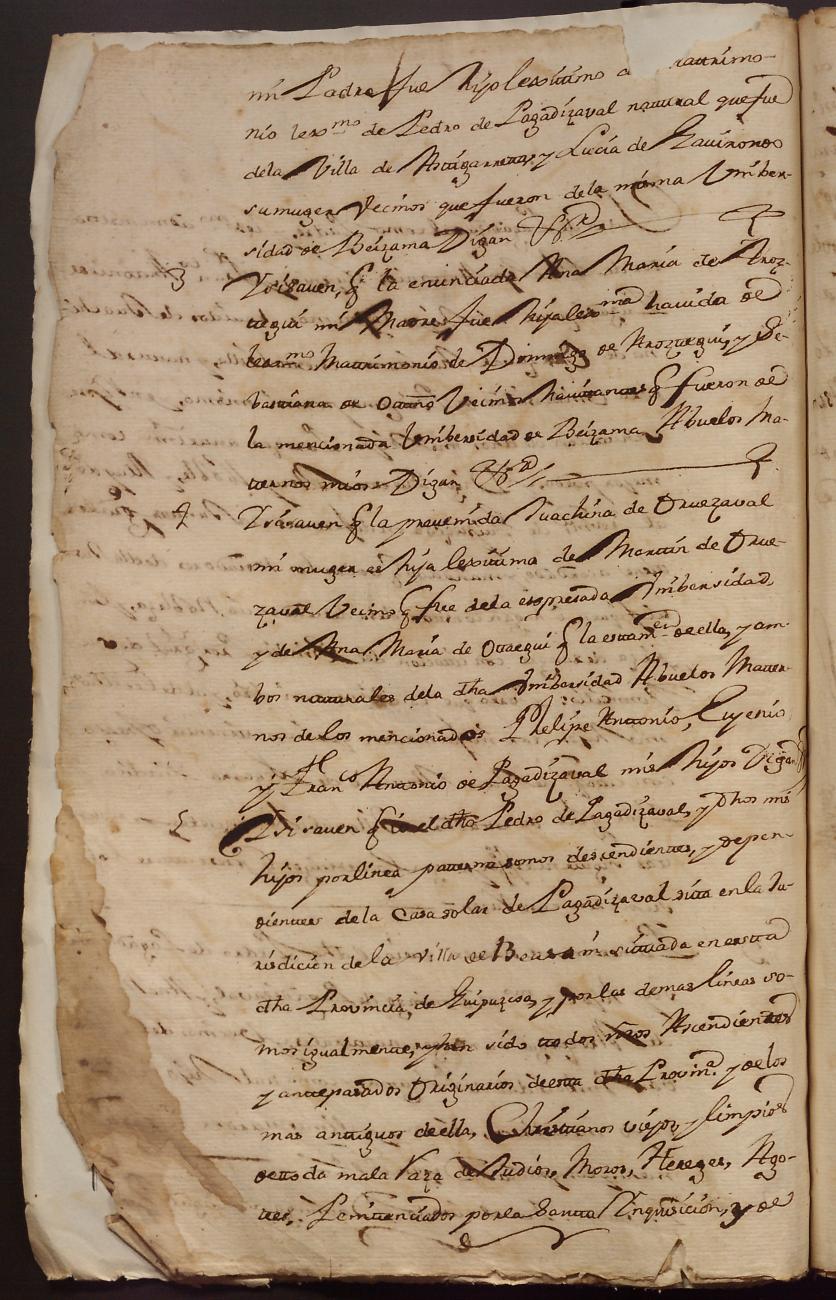 mi Padre fue hijo lexitimo de matrimo-
nio lexmo de Pedro de Lagadizaval natural que fue
dela Villa de Astigarreta, y Lucia de Gavirondo
su muger Vecinos que fueron dela misma Vmiber-
sidad de Beizama Digan &ra
3 Ysisaven, q la enunciada Ana Maria de Aroz-
tegui mi Madre fue hija lexma havida de
lexmo Mattrimonio de Domingo de Aroztegui, y Se-
bastiana de Ottaño Vecinos havitantes q fueron de
la mencionada Vmibersidad de Beizama Abuelos Ma-
ternos mios Digan &ra
4 Ysisaven q la prevenida Juachina de Oruezaval
mi muger es hija lexitima de Marttin de Orue-
zaval Vecino q fue dela espresada Vmibersidad,
y de Ana Maria de Ottegui q la es de ella, y am-
bos natturales dela dha Vmibersidad Abuelos Matter-
nos de los mencionados Phelipe Anttonio, Eugenio,
y Franco Anttonio de Lagadizaval mis hijos Digan
5 Ysisaven q io el dho Pedro de Lagadizaval, y dhos mis
hijos por linea patterna somos descendientes, y depen-
dientes de la Casa solar de Lagadizaval sita en la Ju-
risdicion de la Villa de situada en estta
dha Provincia, de Guipuzcoa, y por las demas lineas so-
mos igualmente, y han sido ttodos nros Ascendientes
y anttepasados Originarios de esta dha Provina y de los
mas anttiguos de ella, Christtianos viejos, y limpios
de ttoda mala Raza de Judios, Moros, Hereges, Ago-
tes, Penitenciados por la Santta Ynquisicion, y de